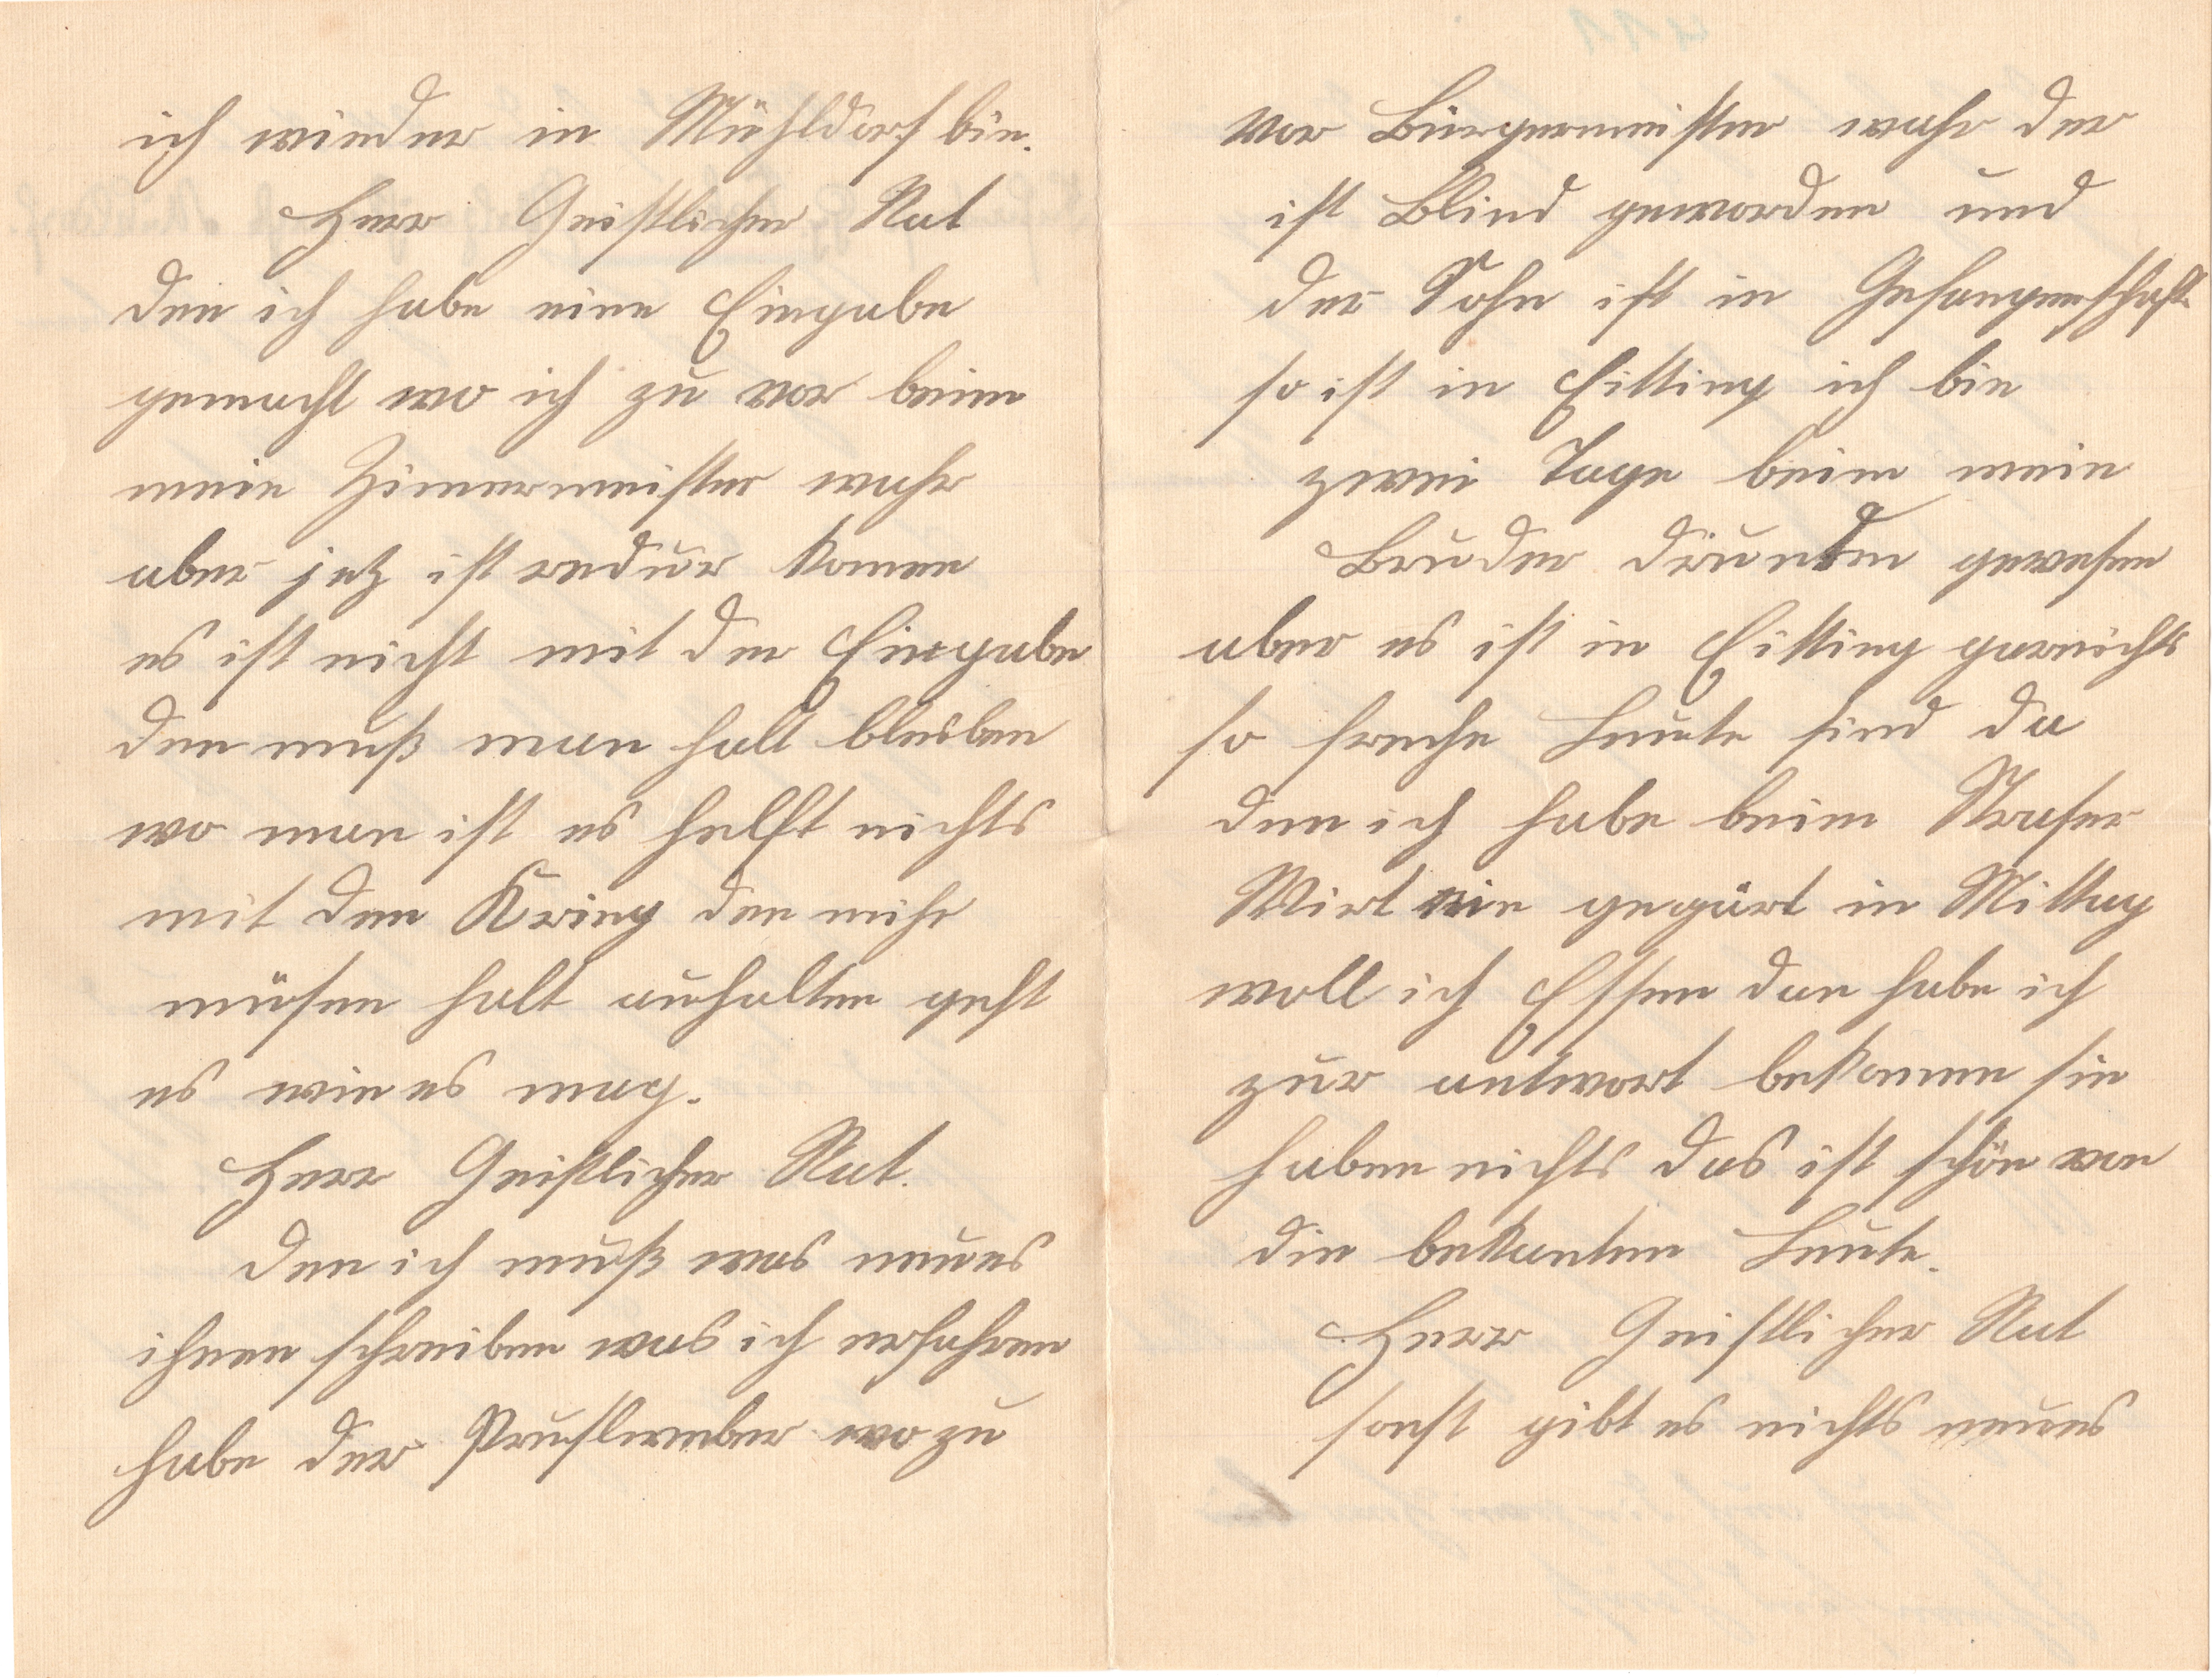 ich wieder in Mühldorf bin.
Herr Geistlicher Rat
den ich habe eine Eingabe
gemacht wo ich zu vor beim
mein Zimermeister wahr
aber jetz ist redur komen
es ist nicht mit der Eingabe
den muß man halt bleiben
wo man ist es helft nichts
mit den Krieg den mihr
müsen halt aushalten geht
es wie es mag.
Herr Geistlicher Rat.
den ich muß was neues
ihnen schreiben was ich erfahren
habe der wo zu
vor Bürgermeister wahr der
ist Blind geworden und
der Sohn ist in Gefangenschaft
so ist in Eitting ich bin
zwei Tage beim mein
Bruder drunten gewesen
aber es ist in Eitting garnichts
so freche Leute sind da
den ich habe beim Straser
Wirt ein gekärt in Mittag
woll ich Essen dan habe ich
zur antwort bekomen sie
haben nichts das ist schön von
die bekanten Leute.
Herr Geistlicher Rat
sonst gibt es nichts neues